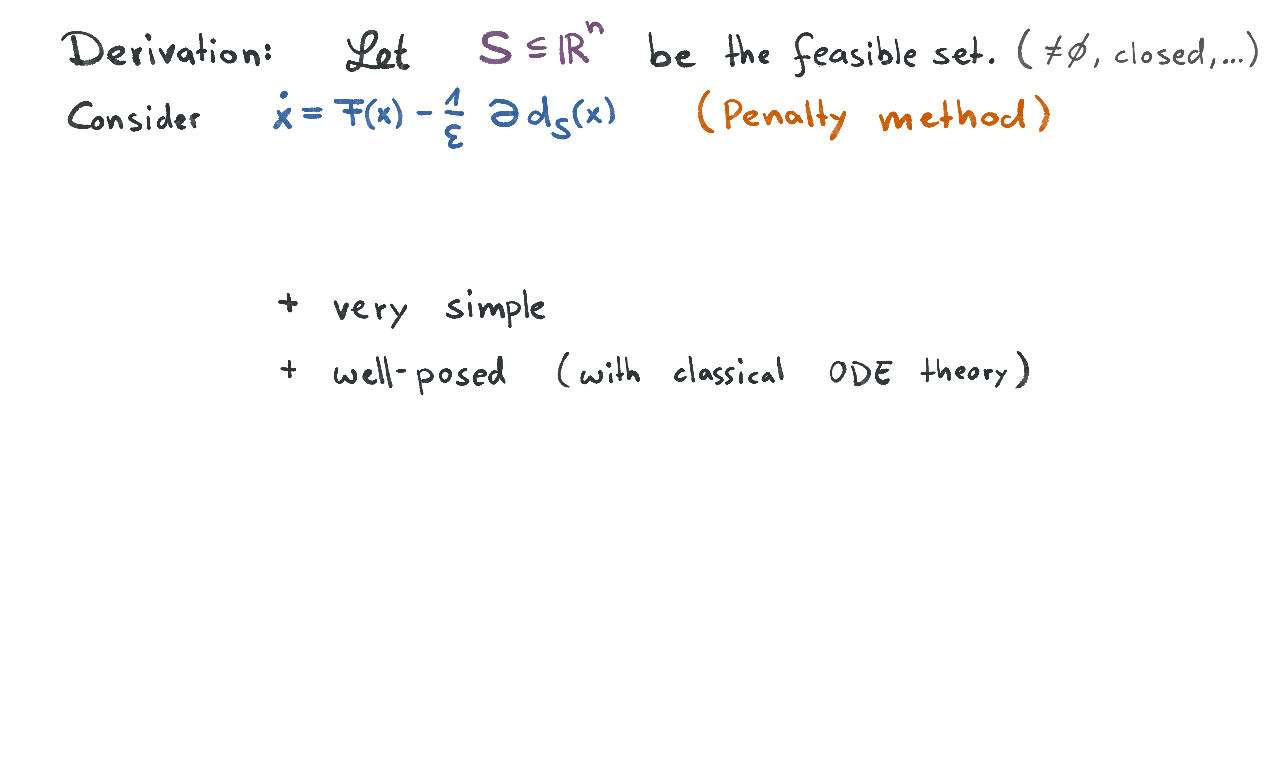 Derivation: Let S ⊆ ℝⁿ be the feasible set. (≠∅, closed,...)
Consider ẋ = F(x) - 1/ε ∂d_S(x) (Penalty method)
+ very simple
+ well-posed (with classical ODE theory)